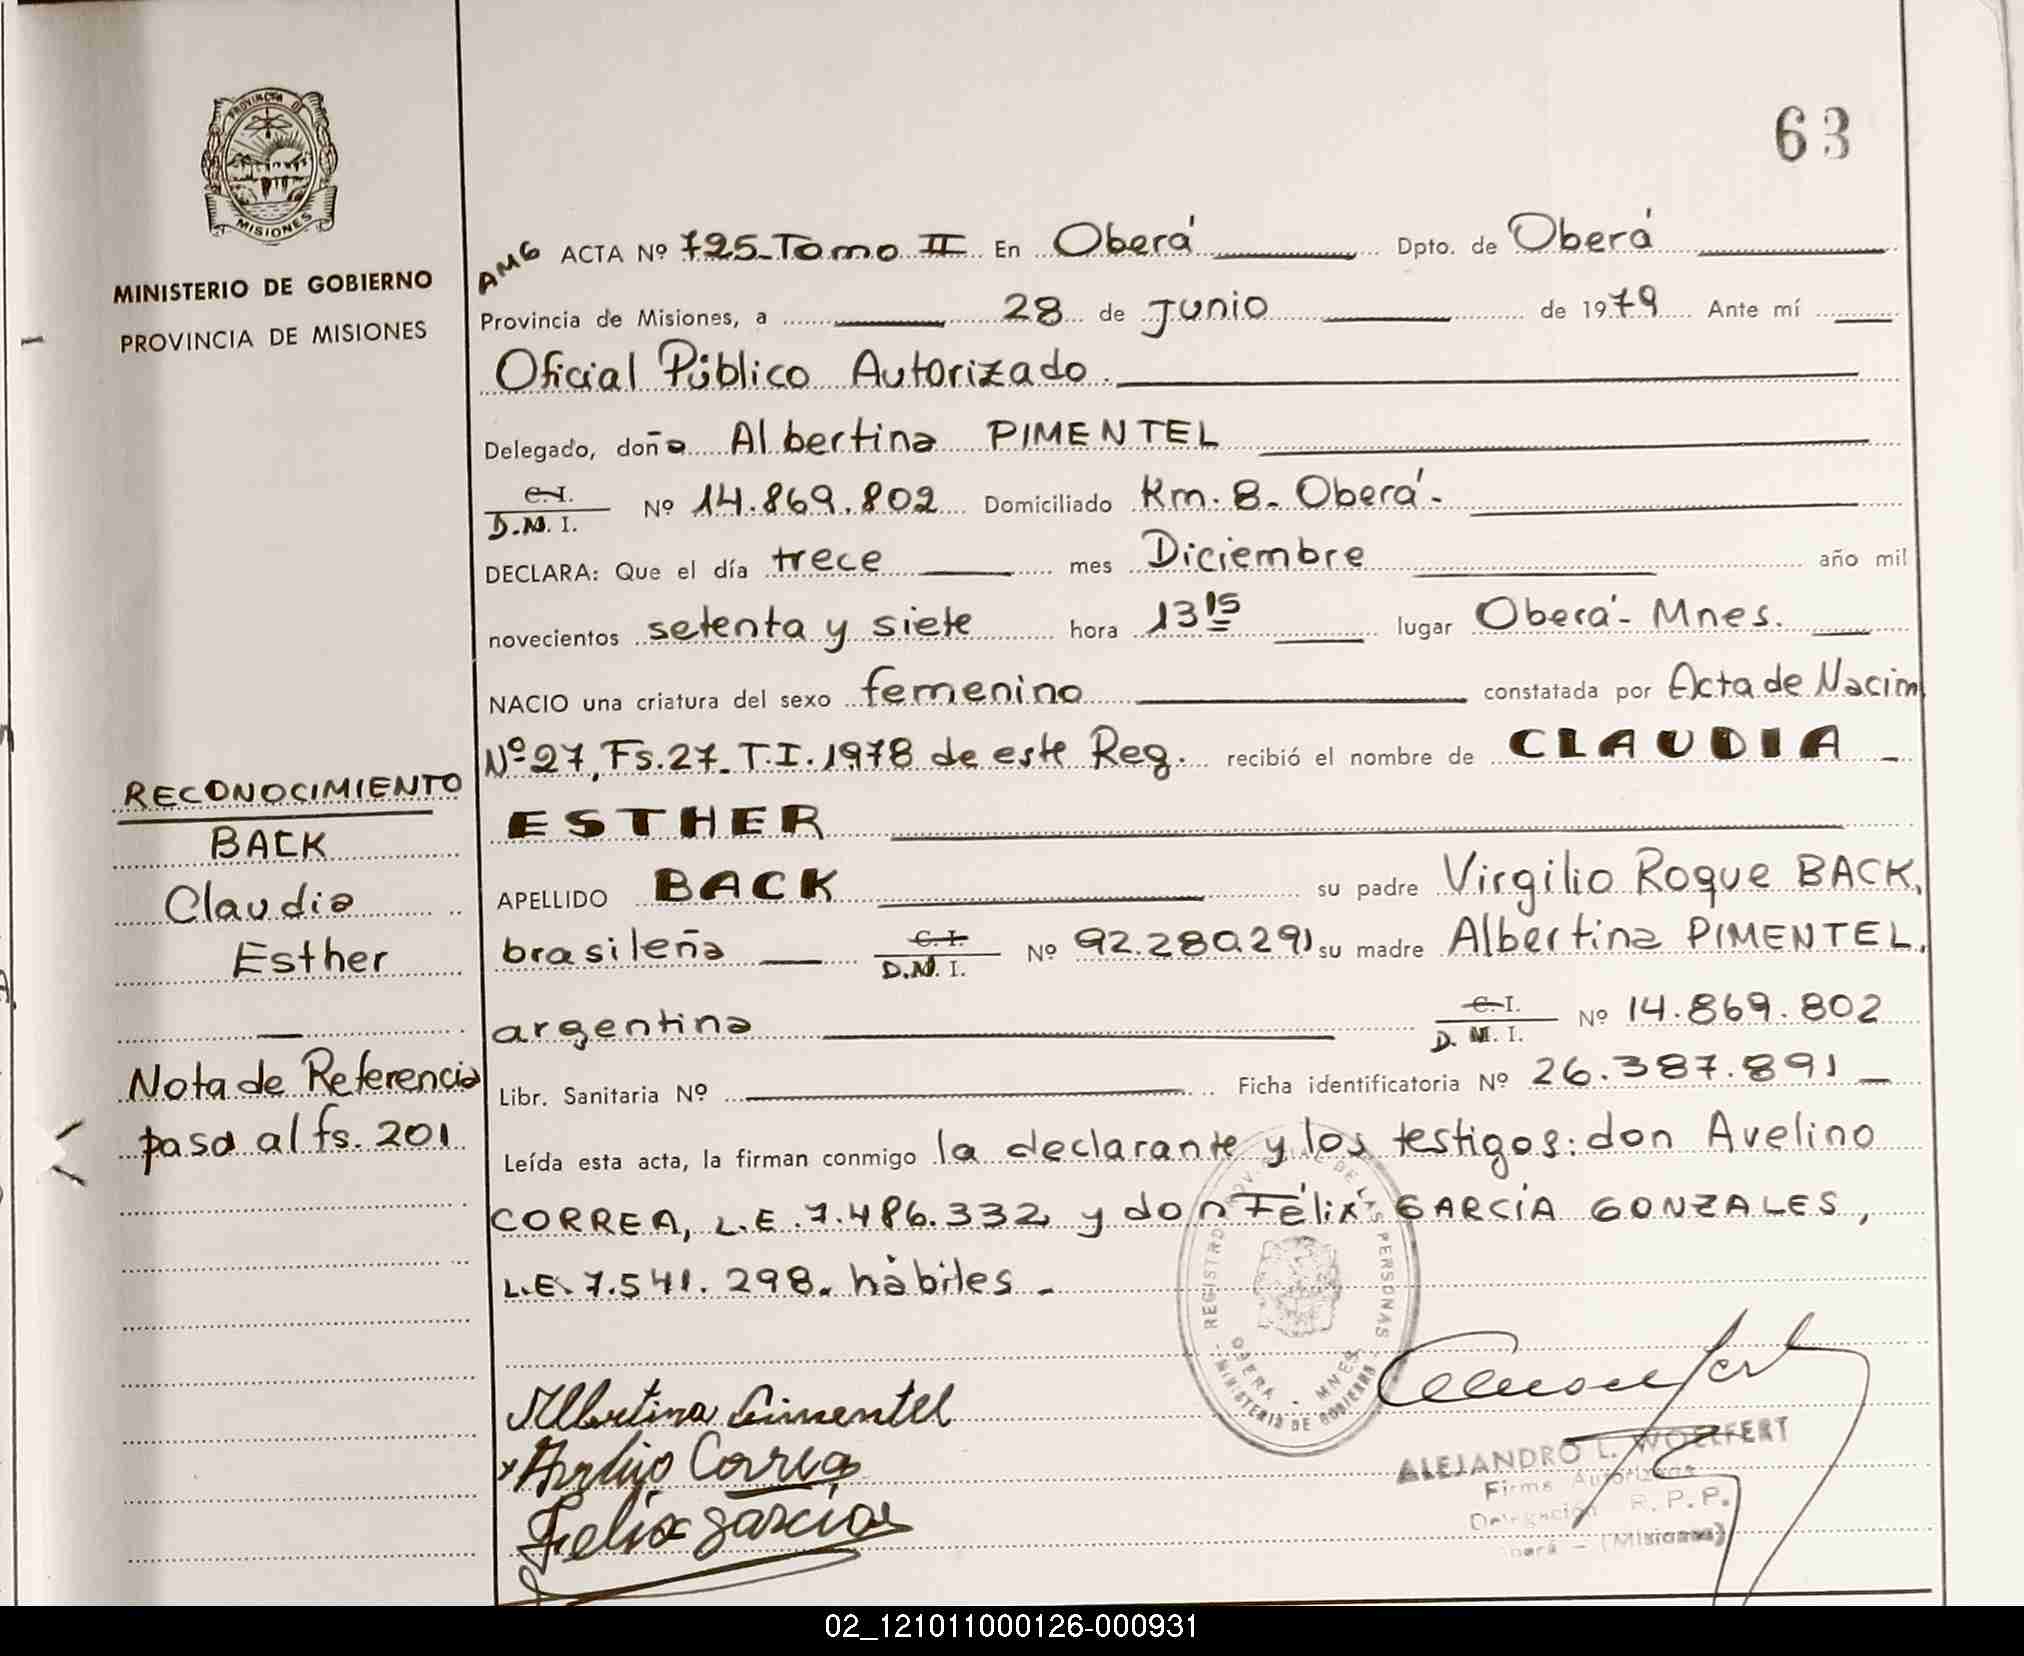 63
PROVINCIA DE
MISIONES
MINISTERIO DE GOBIERNO
PROVINCIA DE MISIONES
AMG ACTA Nº 725 - Tomo II En Oberá Dpto. de Oberá
Provincia de Misiones, a 28 de Junio de 1979 Ante mí
Oficial Público Autorizado.
Delegado, doña Albertina PIMENTEL
C.I.
D.N.I. Nº 14.869.802 Domiciliado Km. 8 - Oberá -
DECLARA: Que el día trece mes Diciembre año mil
novecientos setenta y siete hora 13 15 lugar Oberá - Mnes.
NACIO una criatura del sexo femenino constatada por Acta de Nacim
Nº 27, Fs. 27 - T.I. 1978 de este Reg. recibió el nombre de CLAUDIA
ESTHER
APELLIDO BACK su padre Virgilio Roque BACK,
brasileña C.I. D.N.I. Nº 92.280.291 su madre Albertina PIMENTEL,
argentina C.I. D.N.I. Nº 14.869.802
Libr. Sanitaria Nº Ficha identificatoria Nº 26.387.891
Leída esta acta, la firman conmigo la declarante y los testigos: don Avelino
CORREA, L.E. 7.486.332 y don Félix GARCÍA GONZALES,
L.E. 7.541.298. hàbiles -
RECONOCIMIENTO
BACK
Claudia
Esther
Nota de Referencia
pasa al fs. 201
REGISTRO PROVINCIAL DE LAS PERSONAS
OBERA - MNES
MINISTERIO DE GOBIERNO
Albertina Pimentel
Correa
Felix garcia
ALEJANDRO L. WOELFERT
Firma Autorizada
Delegación R.P.P.
Oberá - (Misiones)
02_121011000126-000931